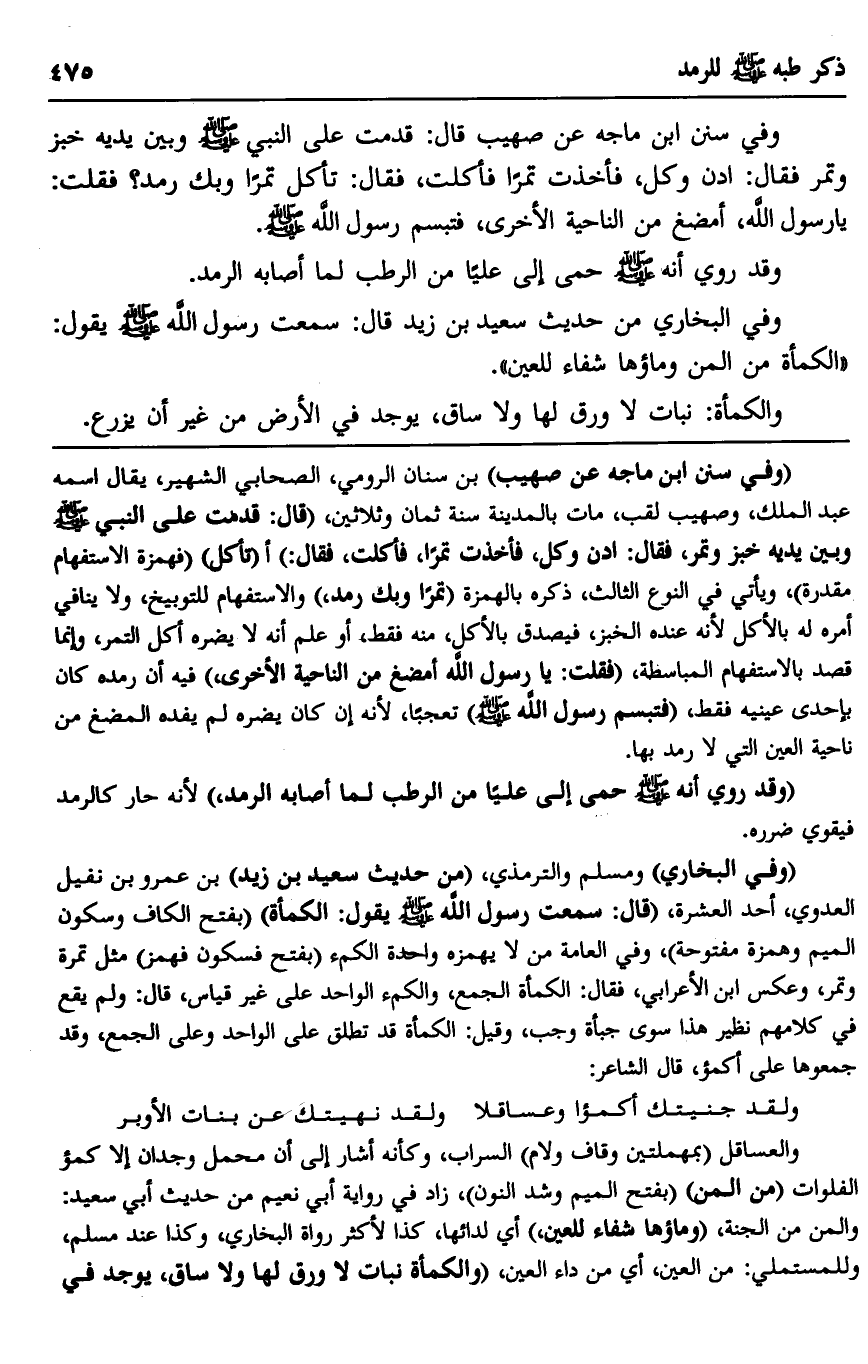 ذكر طبه ﷺ للرمد ٤٧٥
وفي سنن ابن ماجه عن صهيب قال: قدمت على النبي ﷺ وبين يديه خبز
وتمر فقال: ادن وكل، فأخذت تمرًا فأكلت، فقال: تأكل تمرًا وبك رمد؟ فقلت:
يارسول اللَّه، أمضغ من الناحية الأخرى، فتبسم رسول اللَّه ﷺ.
وقد روي أنه ﷺ حمى إلى عليًا من الرطب لما أصابه الرمد.
وفي البخاري من حديث سعيد بن زيد قال: سمعت رسول اللَّه ﷺ يقول:
«الكمأة من المن وماؤها شفاء للعين».
والكمأة: نبات لا ورق لها ولا ساق، يوجد في الأرض من غير أن يزرع.
(وفي سنن ابن ماجه عن صهيب) بن سنان الرومي، الصحابي الشهير، يقال اسمه
عبد الملك، وصهيب لقب، مات بالمدينة سنة ثمان وثلاثين، (قال: قدمت على النبي ﷺ
وبين يديه خبز وتمر، فقال: ادن وكل، فأخذت تمرًا، فأكلت، فقال:) أ (تأكل) (فهمزة الاستفهام
مقدرة)، ويأتي في النوع الثالث، ذكره بالهمزة (تمرًا وبك رمد،) والاستفهام للتوبيخ، ولا ينافي
أمره له بالأكل لأنه عنده الخبز، فيصدق بالأكل، منه فقط، أو علم أنه لا يضره أكل التمر، وإنما
قصد بالاستفهام المباسطة، (فقلت: يا رسول اللَّه أمضغ من الناحية الأخرى،) فيه أن رمده كان
بإحدى عينيه فقط، (فتبسم رسول اللَّه ﷺ) تعجبًا، لأنه إن كان يضره لم يفده المضغ من
ناحية العين التي لا رمد بها.
(وقد روي أنه ﷺ حمى إلى عليًا من الرطب لما أصابه الرمد،) لأنه حار كالرمد
فيقوي ضرره.
(وفي البخاري) ومسلم والترمذي، (من حديث سعيد بن زيد) بن عمرو بن نفيل
العدوي، أحد العشرة، (قال: سمعت رسول اللَّه ﷺ يقول: الكمأة) (بفتح الكاف وسكون
الميم وهمزة مفتوحة)، وفي العامة من لا يهمزه واحدة الكمء (بفتح فسكون فهمز) مثل تمرة
وتمر، وعكس ابن الأعرابي، فقال: الكمأة الجمع، والكمء الواحد على غير قياس، قال: ولم يقع
في كلامهم نظير هذا سوى جبأة وجب، وقيل: الكمأة قد تطلق على الواحد وعلى الجمع، وقد
جمعوها على أكمؤ، قال الشاعر:
ولقد جنيتك أكمؤا وعساقلا ولقد نهيتك عن بنات الأوبر
والعساقل (بمهملتين وقاف ولام) السراب، وكأنه أشار إلى أن محمل وجدان إلا كمؤ
الفلوات (من المن) (بفتح الميم وشد النون)، زاد في رواية أبي نعيم من حديث أبي سعيد:
والمن من الجنة، (وماؤها شفاء للعين،) أي لدائها، كذا لأكثر رواة البخاري، وكذا عند مسلم،
وللمستملي: من العين، أي من داء العين، (والكمأة نبات لا ورق لها ولا ساق، يوجد في